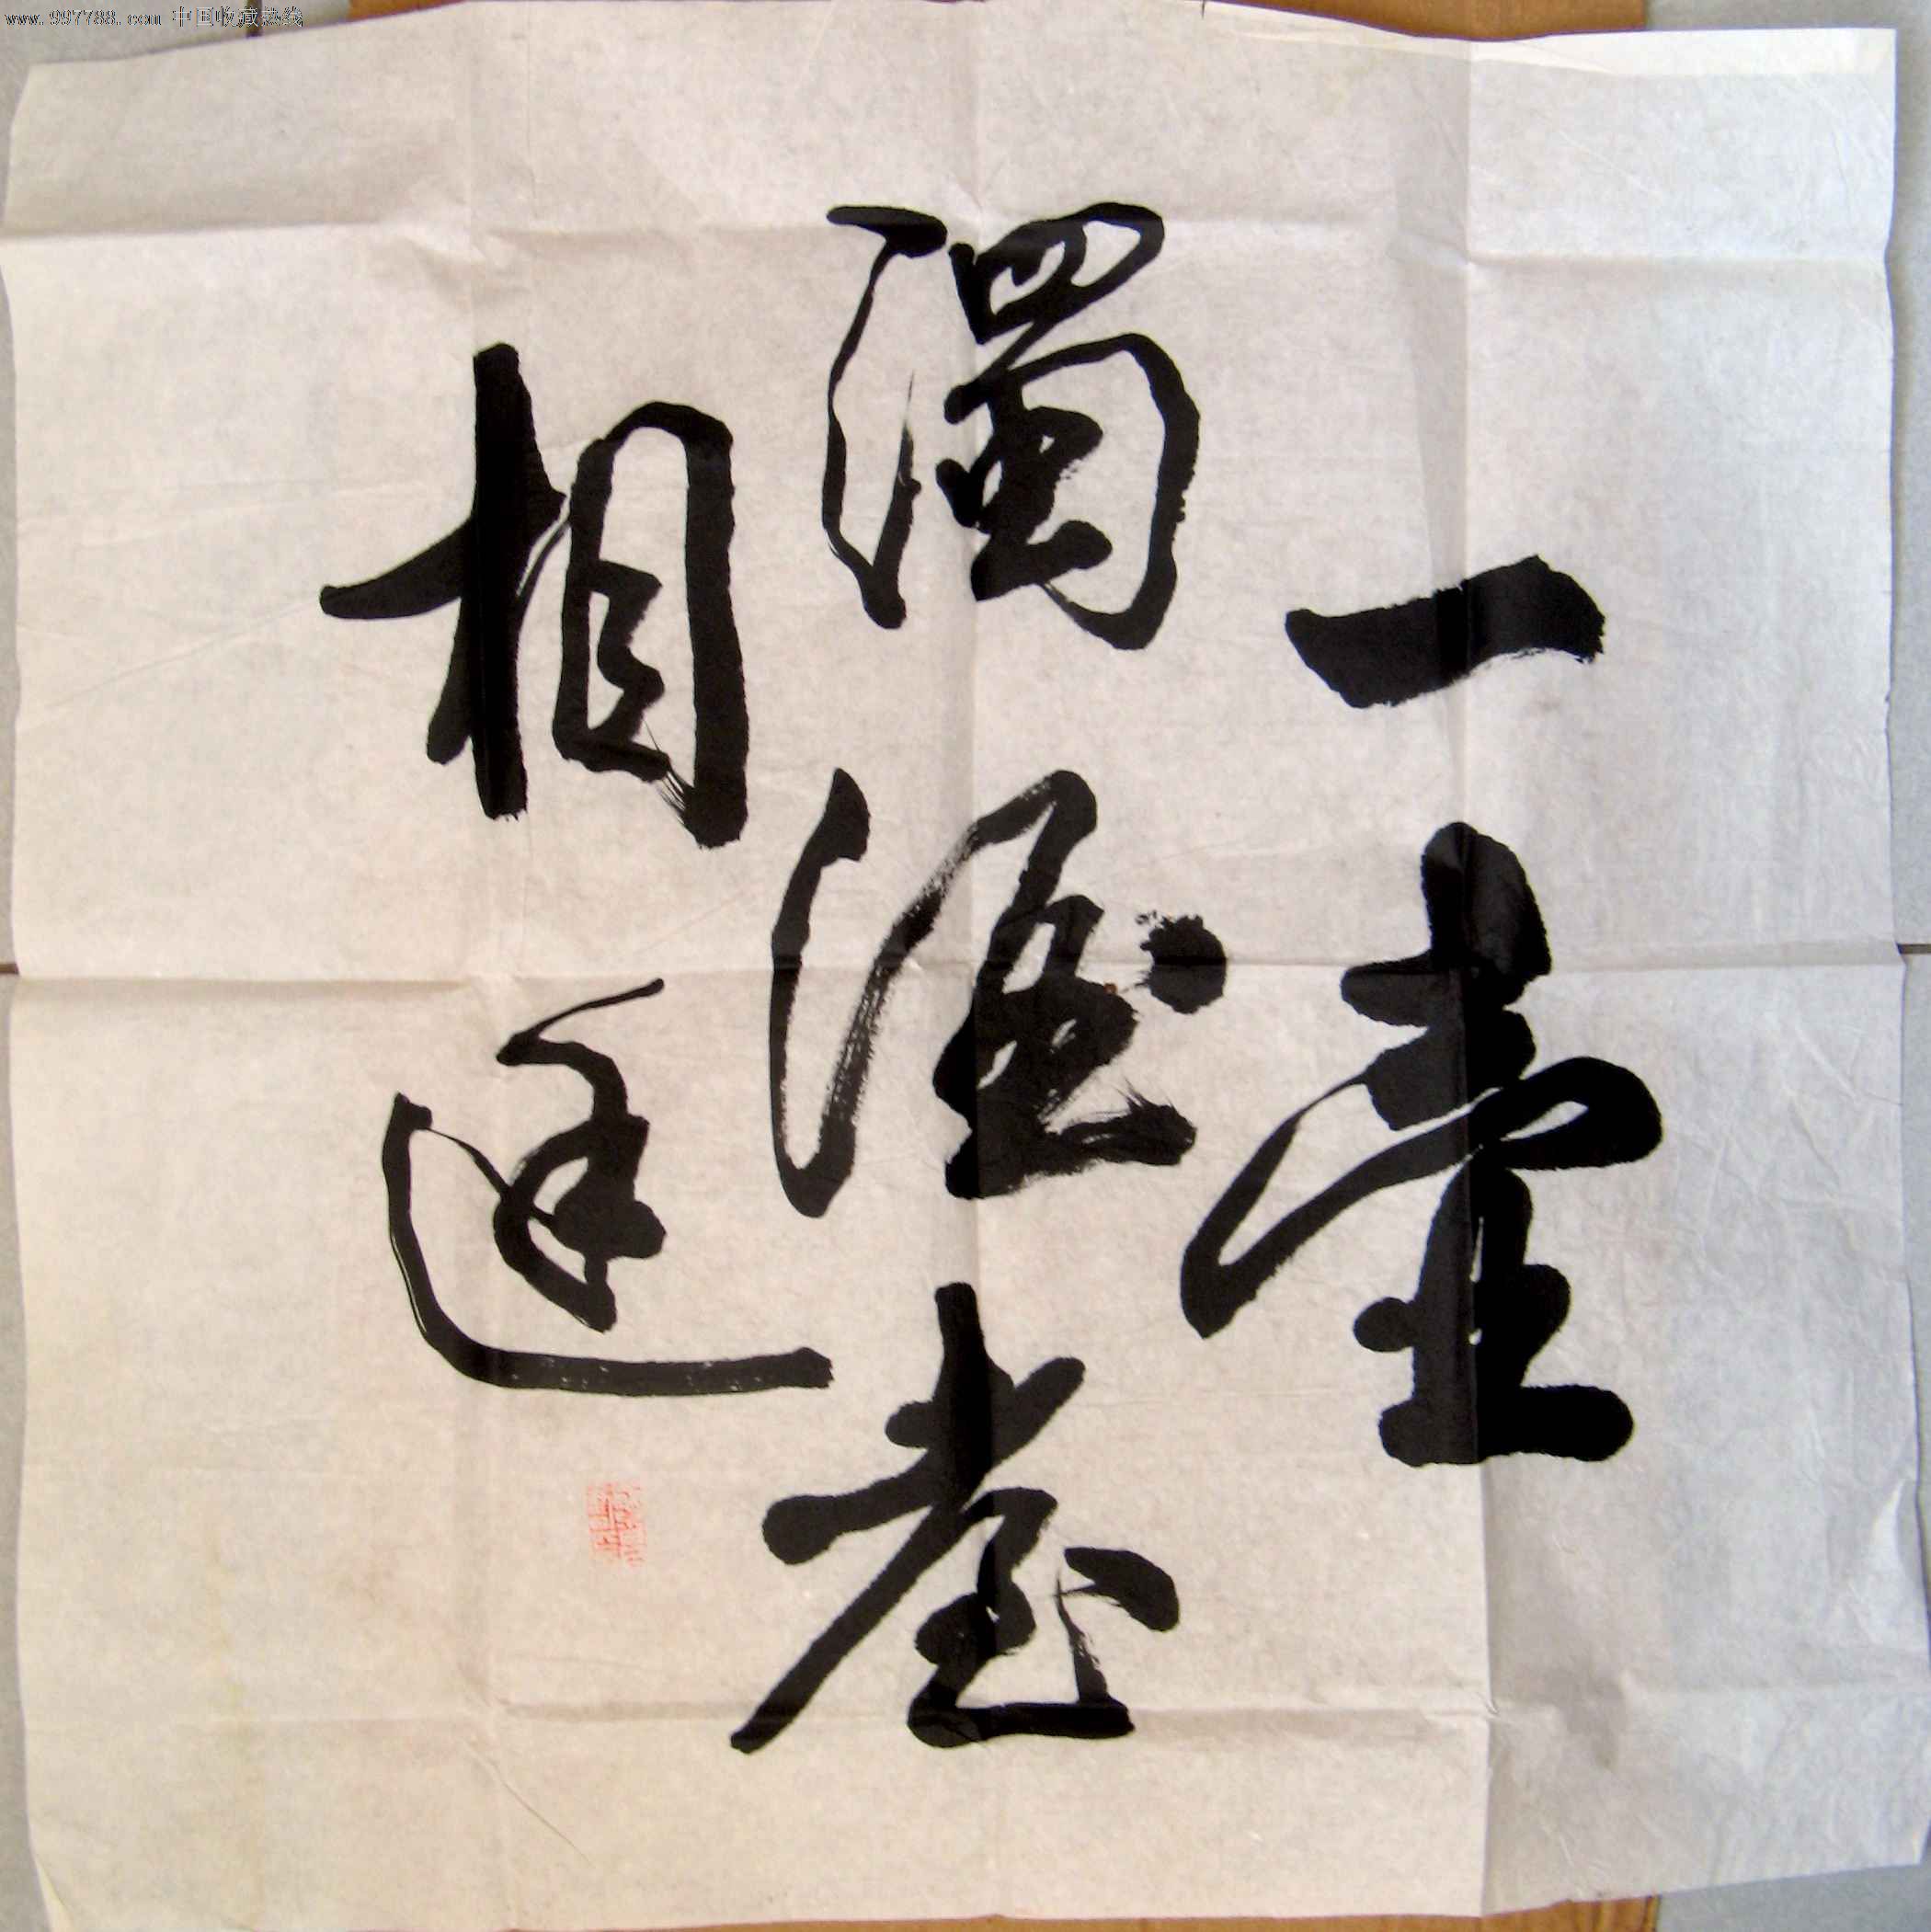 www.997788.com 中国收藏热线
一壺
濁酒喜
相逢